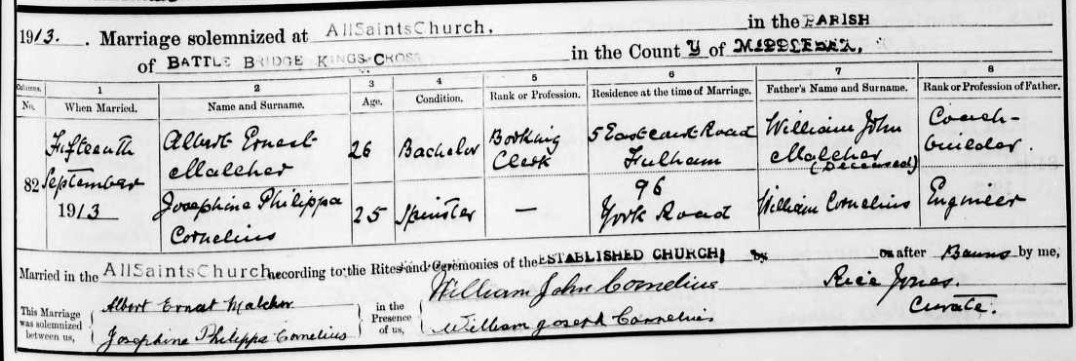 1913. Marriage solemnized at All Saints Church, in the PARISH
of BATTLE BRIDGE KINGS CROSS in the County of MIDDLESEX,
Columns. 1 2 3 4 5 6 7 8
No. When Married. Name and Surname. Age. Condition. Rank or Profession. Residence at the time of Marriage. Father's Name and Surname. Rank or Profession of Father.
82 Fifteenth September 1913
Albert Ernest Malcher 26 Bachelor Booking Clerk 5 Eastcourt Road Fulham William John Malcher (Deceased) Coach-builder.
Josephine Philippa Cornelius 25 Spinster — 96 York Road William Cornelius Engineer
Married in the All Saints Church according to the Rites and Ceremonies of the ESTABLISHED CHURCH, by or after Banns by me,
This Marriage was solemnized between us,
Albert Ernest Malcher
Josephine Philippa Cornelius
in the Presence of us,
William John Cornelius
William Joseph Cornelius
Rice Jones.
Curate.